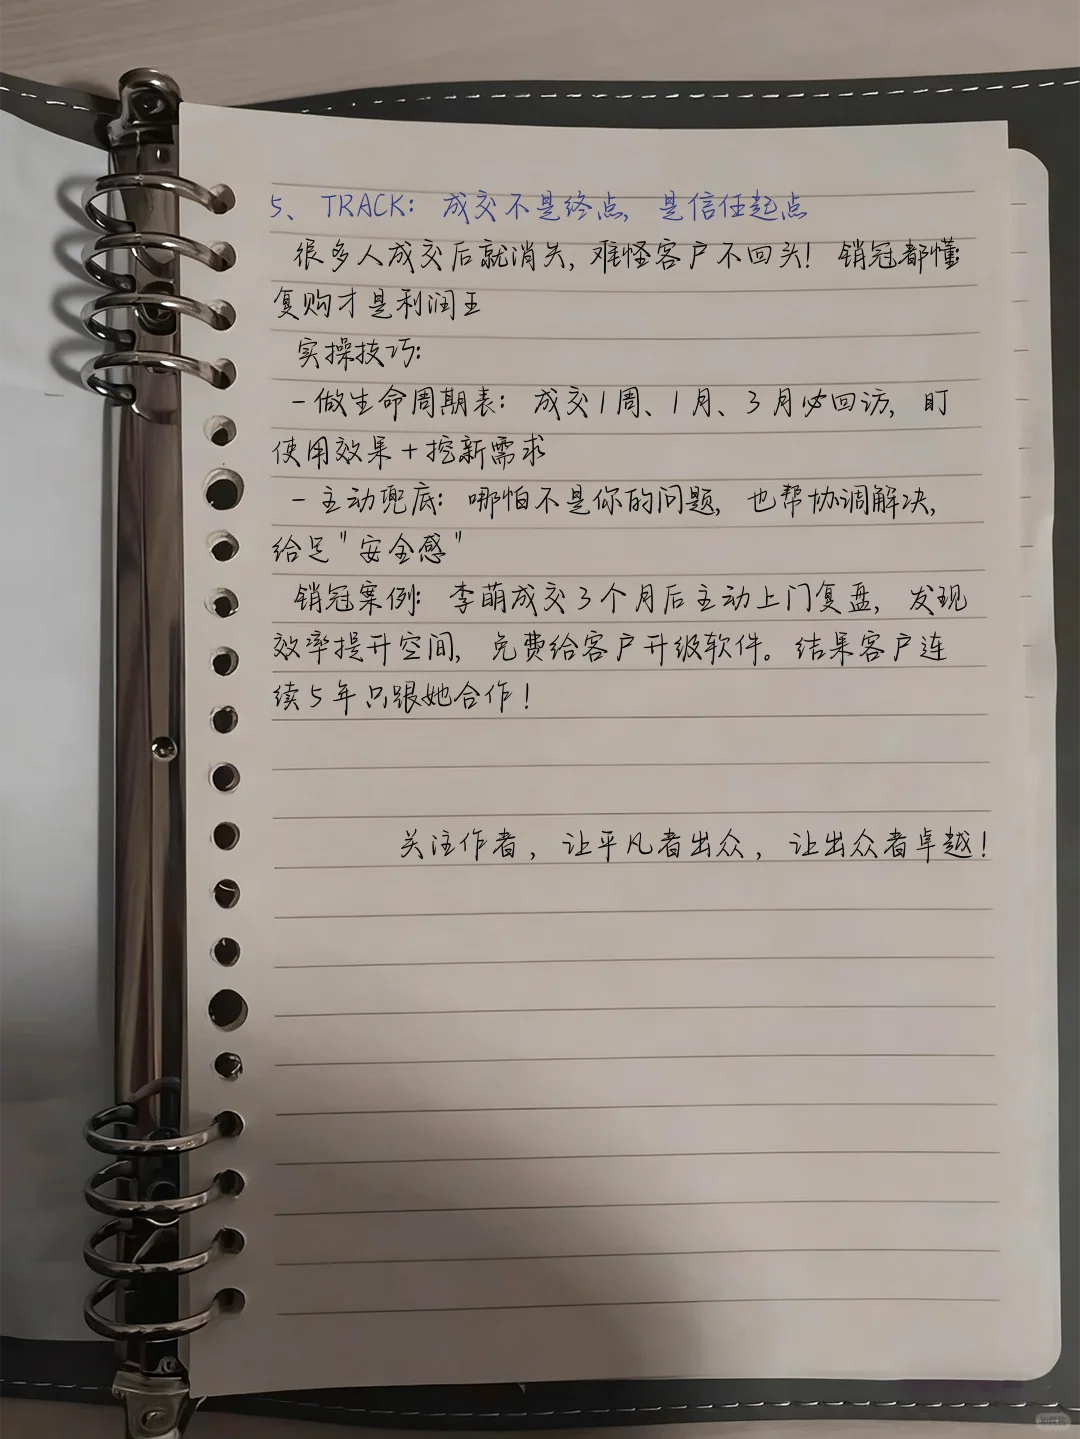 5、TRACK：成交不是终点，是信任起点
很多人成交后就消失，难怪客户不回头！销冠都懂：
复购才是利润王
实操技巧：
-做生命周期表：成交1周、1月、3月必回访，盯
使用效果+挖新需求
-主动兜底：哪怕不是你的问题，也帮协调解决，
给足"安全感"
销冠案例：李萌成交3个月后主动上门复盘，发现
效率提升空间，免费给客户升级软件。结果客户连
续5年只跟她合作！
关注作者，让平凡者出众，让出众者卓越！